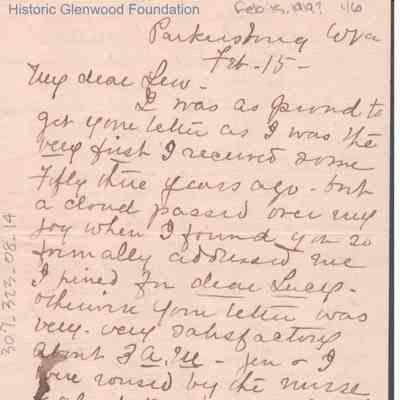 Historic Glenwood Foundation
Feb 15, 1919? 16
Parkersburg W Va
Feb - 15 -
My dear Lew -
I was as proud to
get your letter as I was the
very first I received some
Fifty three years ago - but
a cloud passed over my
joy when I found you so
formally addressed me
I pined for dear Lucy -
otherwise your letter was
very - very satisfactory
about 3 A.M - Jen & I
were roused by the nurse
309-323-08.14